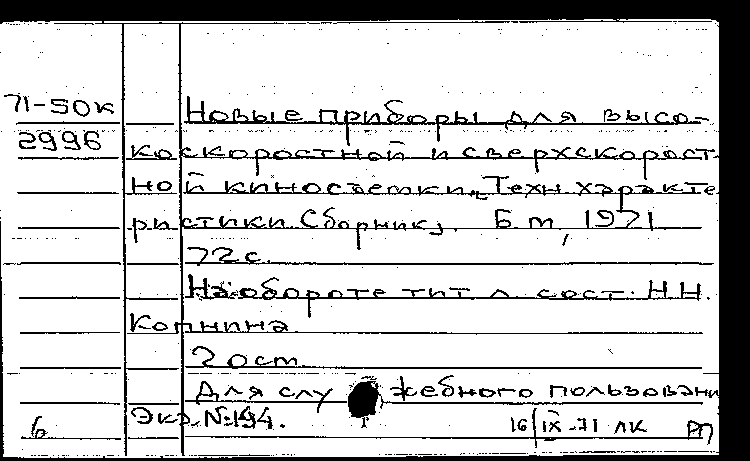 71-50к
2996
Новые приборы для высо-
коскоростной и сверхскорост
ной киносъемки. Техн характе
ристики Сборник. Б м, 1971
72с.
На обороте тит л сост. Н.Н.
Копнина
2 ост
Для служебного пользовани
Экз. №194.
6
16/IX-71 ЛК РП